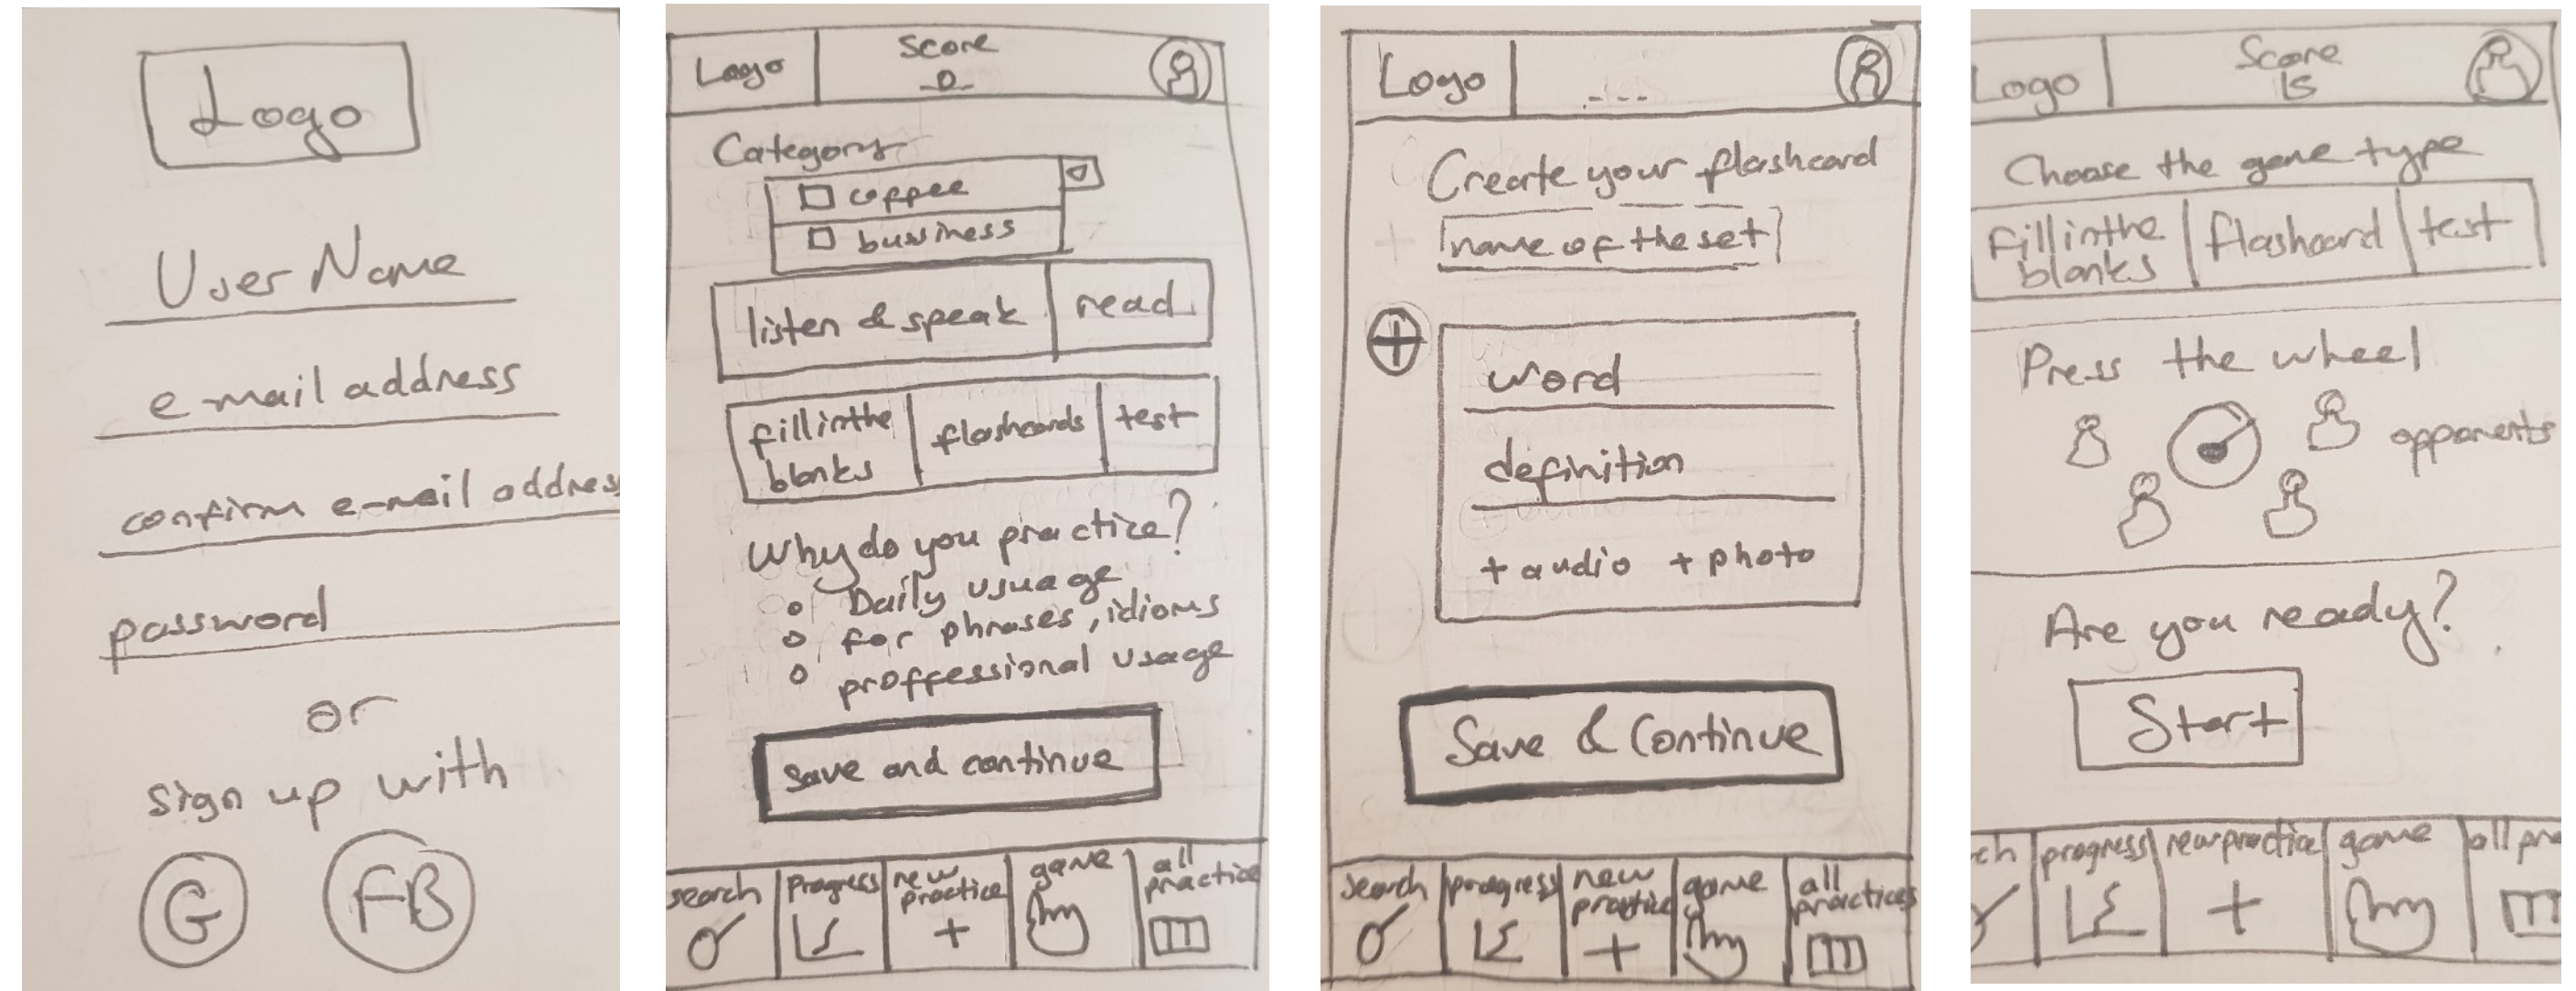 Logo
User Name
e-mail address
confirm e-mail addres
password
or
sign up with
G FB
Logo
Score
0
Category
coffee
bussiness
listen & speak read
fill in the
blanks
flashcards
test
Why do you practice?
Daily usuage
for phrases, idioms
proffessional usage
save and continue
search
progress
new
practice
game
all
practice
Logo
---
Create your flashcard
name of the set
word
definition
+ audio + photo
Save & Continue
search
progress
new
practice
game
all
practices
Logo
Score
15
Choose the game type
Fill in the
blanks
flashcard
test
Press the wheel
opponents
Are you ready?
Start
ch
progress
new practice
game
all pra